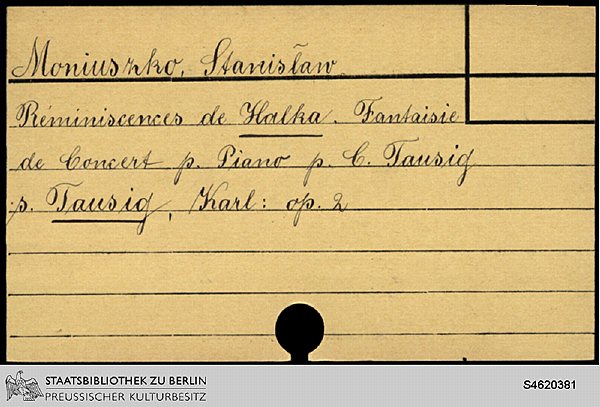 Moniuszko, Stanisław
Réminiscences de Halka. Fantaisie
de Concert p. Piano p. C. Tausig
s. Tausig, Karl: op. 2
STAATSBIBLIOTHEK ZU BERLIN
PREUSSISCHER KULTURBESITZ
S4620381